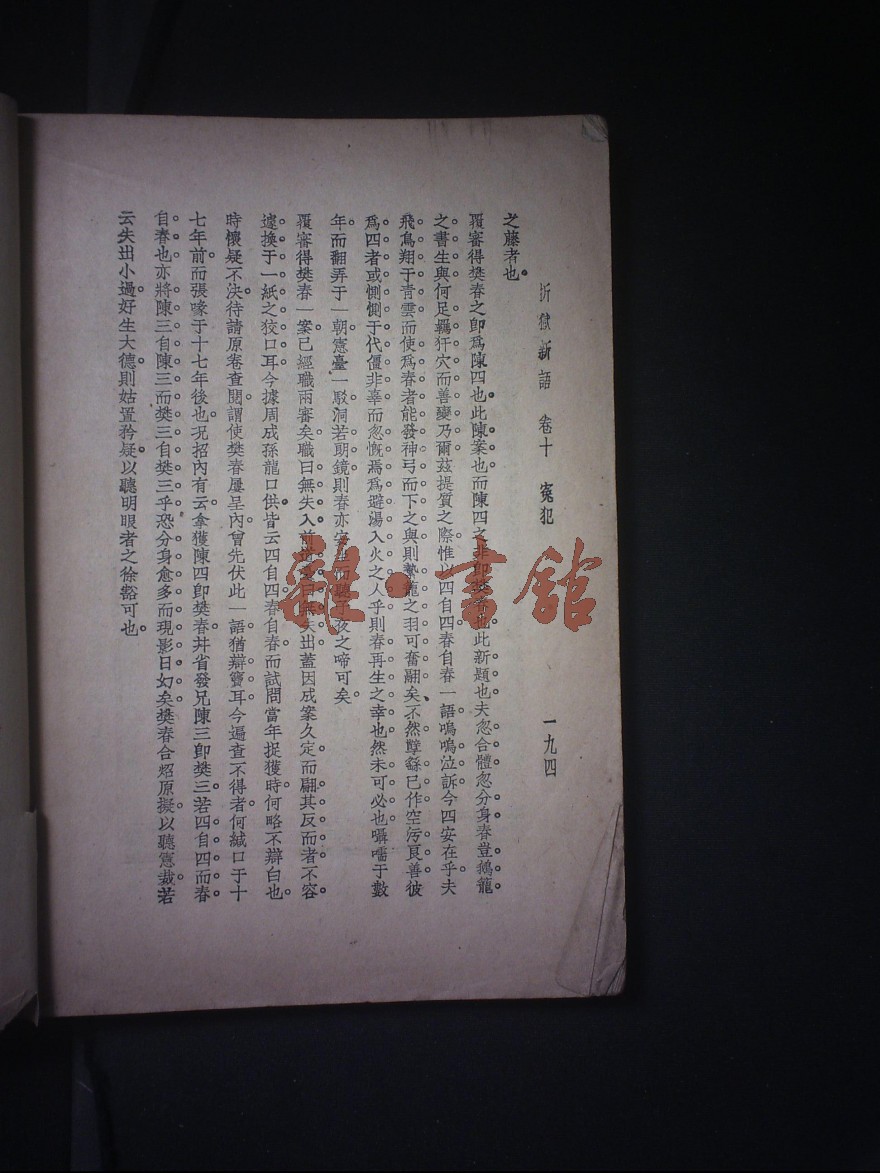 折獄新語 卷十 冤犯 一九四
之藤者也。
覆審得樊春之卽爲陳四也此陳案也而陳四之非卽樊春也此新題也夫忽合體忽分身春豈鵝籠
之書生與何足羈犴穴而善變乃爾茲提質之際惟以四自四春自春一語嗚嗚泣訴今四安在乎夫
飛鳥翔于青雲而使爲春者能發神弓而下之與則縶龍之羽可奮翮矣不然孽繇已作空污良善彼
爲四者或惻惻于代僵非辜而忽慨焉爲避湯入火之人乎則春再生之幸也然未可必也囁嚅于數
年而翻弄于一朝憲臺一駁洞若朗鏡則春亦安坐而聽子夜之啼可矣。
覆審得樊春一案已經職兩審矣職曰無失入前道憲曰無失出蓋因成案久定而翩其反而者不容
遽換于一紙之狡口耳今據周成孫龍口供皆云四自四春自春而試問當年捉獲時何略不辯白也。
時懷疑不決待請原卷查閱謂使樊春屢呈內曾先伏此一語猶辯竇耳今遍查不得者何緘口于十
七年前而張喙于十七年後也况招內有云拿獲陳四卽樊春幷省發兄陳三卽樊三若四自四而春
自春也亦將陳三自陳三而樊三自樊三乎恐分身愈多而現影日幻矣樊春合炤原擬以聽憲裁若
云失出小過好生大德則姑置矜疑以聽明眼者之徐豁可也。
雜·書館